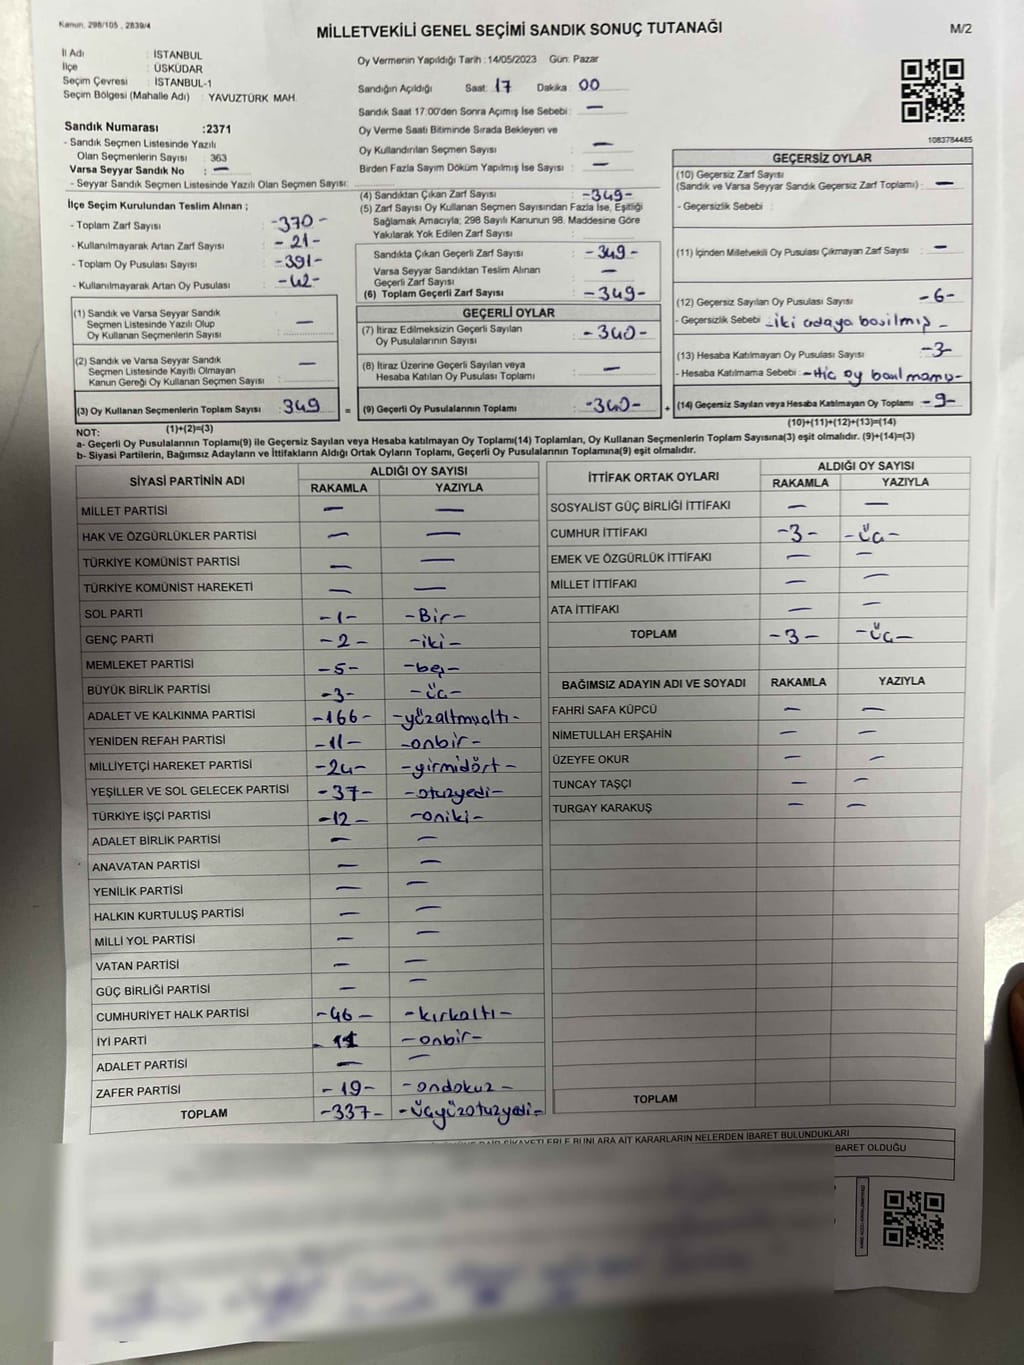 Kanun, 298/105 , 2839/4
MİLLETVEKİLİ GENEL SEÇİMİ SANDIK SONUÇ TUTANAĞI
M/2
İl Adı : İSTANBUL
İlçe : ÜSKÜDAR
Seçim Çevresi : İSTANBUL-1
Seçim Bölgesi (Mahalle Adı) : YAVUZTÜRK MAH.
Oy Vermenin Yapıldığı Tarih :14/05/2023 Gün: Pazar
Sandığın Açıldığı Saat: 17 Dakika: 00
Sandık Saat 17:00'den Sonra Açımış İse Sebebi : —
Oy Verme Saati Bitiminde Sırada Bekleyen ve
Oy Kullandırılan Seçmen Sayısı : —
Birden Fazla Sayım Döküm Yapılmış İse Sayısı : —
1083784485
Sandık Numarası :2371
- Sandık Seçmen Listesinde Yazılı
Olan Seçmenlerin Sayısı : 363
Varsa Seyyar Sandık No : —
- Seyyar Sandık Seçmen Listesinde Yazılı Olan Seçmen Sayısı:
İlçe Seçim Kurulundan Teslim Alınan ;
- Toplam Zarf Sayısı : -370-
- Kullanılmayarak Artan Zarf Sayısı : -21-
- Toplam Oy Pusulası Sayısı : -391-
- Kullanılmayarak Artan Oy Pusulası : -42-
(1) Sandık ve Varsa Seyyar Sandık
Seçmen Listesinde Yazılı Olup
Oy Kullanan Seçmenlerin Sayısı : —
(2) Sandık ve Varsa Seyyar Sandık
Seçmen Listesinde Kayıtlı Olmayan
Kanun Gereği Oy Kullanan Seçmen Sayısı : —
(3) Oy Kullanan Seçmenlerin Toplam Sayısı : 349
(1)+(2)=(3)
(4) Sandıktan Çıkan Zarf Sayısı : -349-
(5) Zarf Sayısı Oy Kullanan Seçmen Sayısından Fazla İse, Eşitliği
Sağlamak Amacıyla; 298 Sayılı Kanunun 98. Maddesine Göre
Yakılarak Yok Edilen Zarf Sayısı :
Sandıkta Çıkan Geçerli Zarf Sayısı : -349-
Varsa Seyyar Sandıktan Teslim Alınan
Geçerli Zarf Sayısı : —
(6) Toplam Geçerli Zarf Sayısı : -349-
GEÇERLİ OYLAR
(7) İtiraz Edilmeksizin Geçerli Sayılan
Oy Pusulalarının Sayısı : -340-
(8) İtiraz Üzerine Geçerli Sayılan veya
Hesaba Katılan Oy Pusulası Toplamı : —
= (9) Geçerli Oy Pusulalarının Toplamı : -340- +
GEÇERSİZ OYLAR
(10) Geçersiz Zarf Sayısı
(Sandık ve Varsa Seyyar Sandık Geçersiz Zarf Toplamı) : —
- Geçersizlik Sebebi :
(11) İçinden Milletvekili Oy Pusulası Çıkmayan Zarf Sayısı : —
(12) Geçersiz Sayılan Oy Pusulası Sayısı : -6-
- Geçersizlik Sebebi : -iki adaya basılmış-
(13) Hesaba Katılmayan Oy Pusulası Sayısı : -3-
- Hesaba Katılmama Sebebi : -Hiç oy
(14) Geçersiz Sayılan veya Hesaba Katılmayan Oy Toplamı : -9-
(10)+(11)+(12)+(13)=(14)
NOT:
a- Geçerli Oy Pusulalarının Toplamı(9) ile Geçersiz Sayılan veya Hesaba katılmayan Oy Toplamı(14) Toplamları, Oy Kullanan Seçmenlerin Toplam Sayısına(3) eşit olmalıdır. (9)+(14)=(3)
b- Siyasi Partilerin, Bağımsız Adayların ve İttifakların Aldığı Ortak Oyların Toplamı, Geçerli Oy Pusulalarının Toplamına(9) eşit olmalıdır.
SİYASİ PARTİNİN ADI
ALDIĞI OY SAYISI
RAKAMLA YAZIYLA
MİLLET PARTİSİ — —
HAK VE ÖZGÜRLÜKLER PARTİSİ — —
TÜRKİYE KOMÜNİST PARTİSİ — —
TÜRKİYE KOMÜNİST HAREKETİ — —
SOL PARTİ -1- -Bir-
GENÇ PARTİ -2- -iki-
MEMLEKET PARTİSİ -5- -beş-
BÜYÜK BİRLİK PARTİSİ -3- -üç-
ADALET VE KALKINMA PARTİSİ -166- -yüzaltmışaltı-
YENİDEN REFAH PARTİSİ -11- -onbir-
MİLLİYETÇİ HAREKET PARTİSİ -24- -yirmidört-
YEŞİLLER VE SOL GELECEK PARTİSİ -37- -otuzyedi-
TÜRKİYE İŞÇİ PARTİSİ -12- -oniki-
ADALET BİRLİK PARTİSİ — —
ANAVATAN PARTİSİ — —
YENİLİK PARTİSİ — —
HALKIN KURTULUŞ PARTİSİ — —
MİLLİ YOL PARTİSİ — —
VATAN PARTİSİ — —
GÜÇ BİRLİĞİ PARTİSİ — —
CUMHURİYET HALK PARTİSİ -46- -kırkaltı-
İYİ PARTİ -11 -onbir-
ADALET PARTİSİ — —
ZAFER PARTİSİ -19- -ondokuz-
TOPLAM -337- -üçyüzotuzyedi-
İTTİFAK ORTAK OYLARI
ALDIĞI OY SAYISI
RAKAMLA YAZIYLA
SOSYALİST GÜÇ BİRLİĞİ İTTİFAKI — —
CUMHUR İTTİFAKI -3- -üç-
EMEK VE ÖZGÜRLÜK İTTİFAKI — —
MİLLET İTTİFAKI — —
ATA İTTİFAKI — —
TOPLAM -3- -üç-
BAĞIMSIZ ADAYIN ADI VE SOYADI RAKAMLA YAZIYLA
FAHRİ SAFA KÜPCÜ — —
NİMETULLAH ERŞAHİN — —
ÜZEYFE OKUR — —
TUNCAY TAŞÇI — —
TURGAY KARAKUŞ — —
TOPLAM
ŞİKAYETLERLE BUNLARA AİT KARARLARIN NELERDEN İBARET BULUNDUKLARI
İBARET OLDUĞU